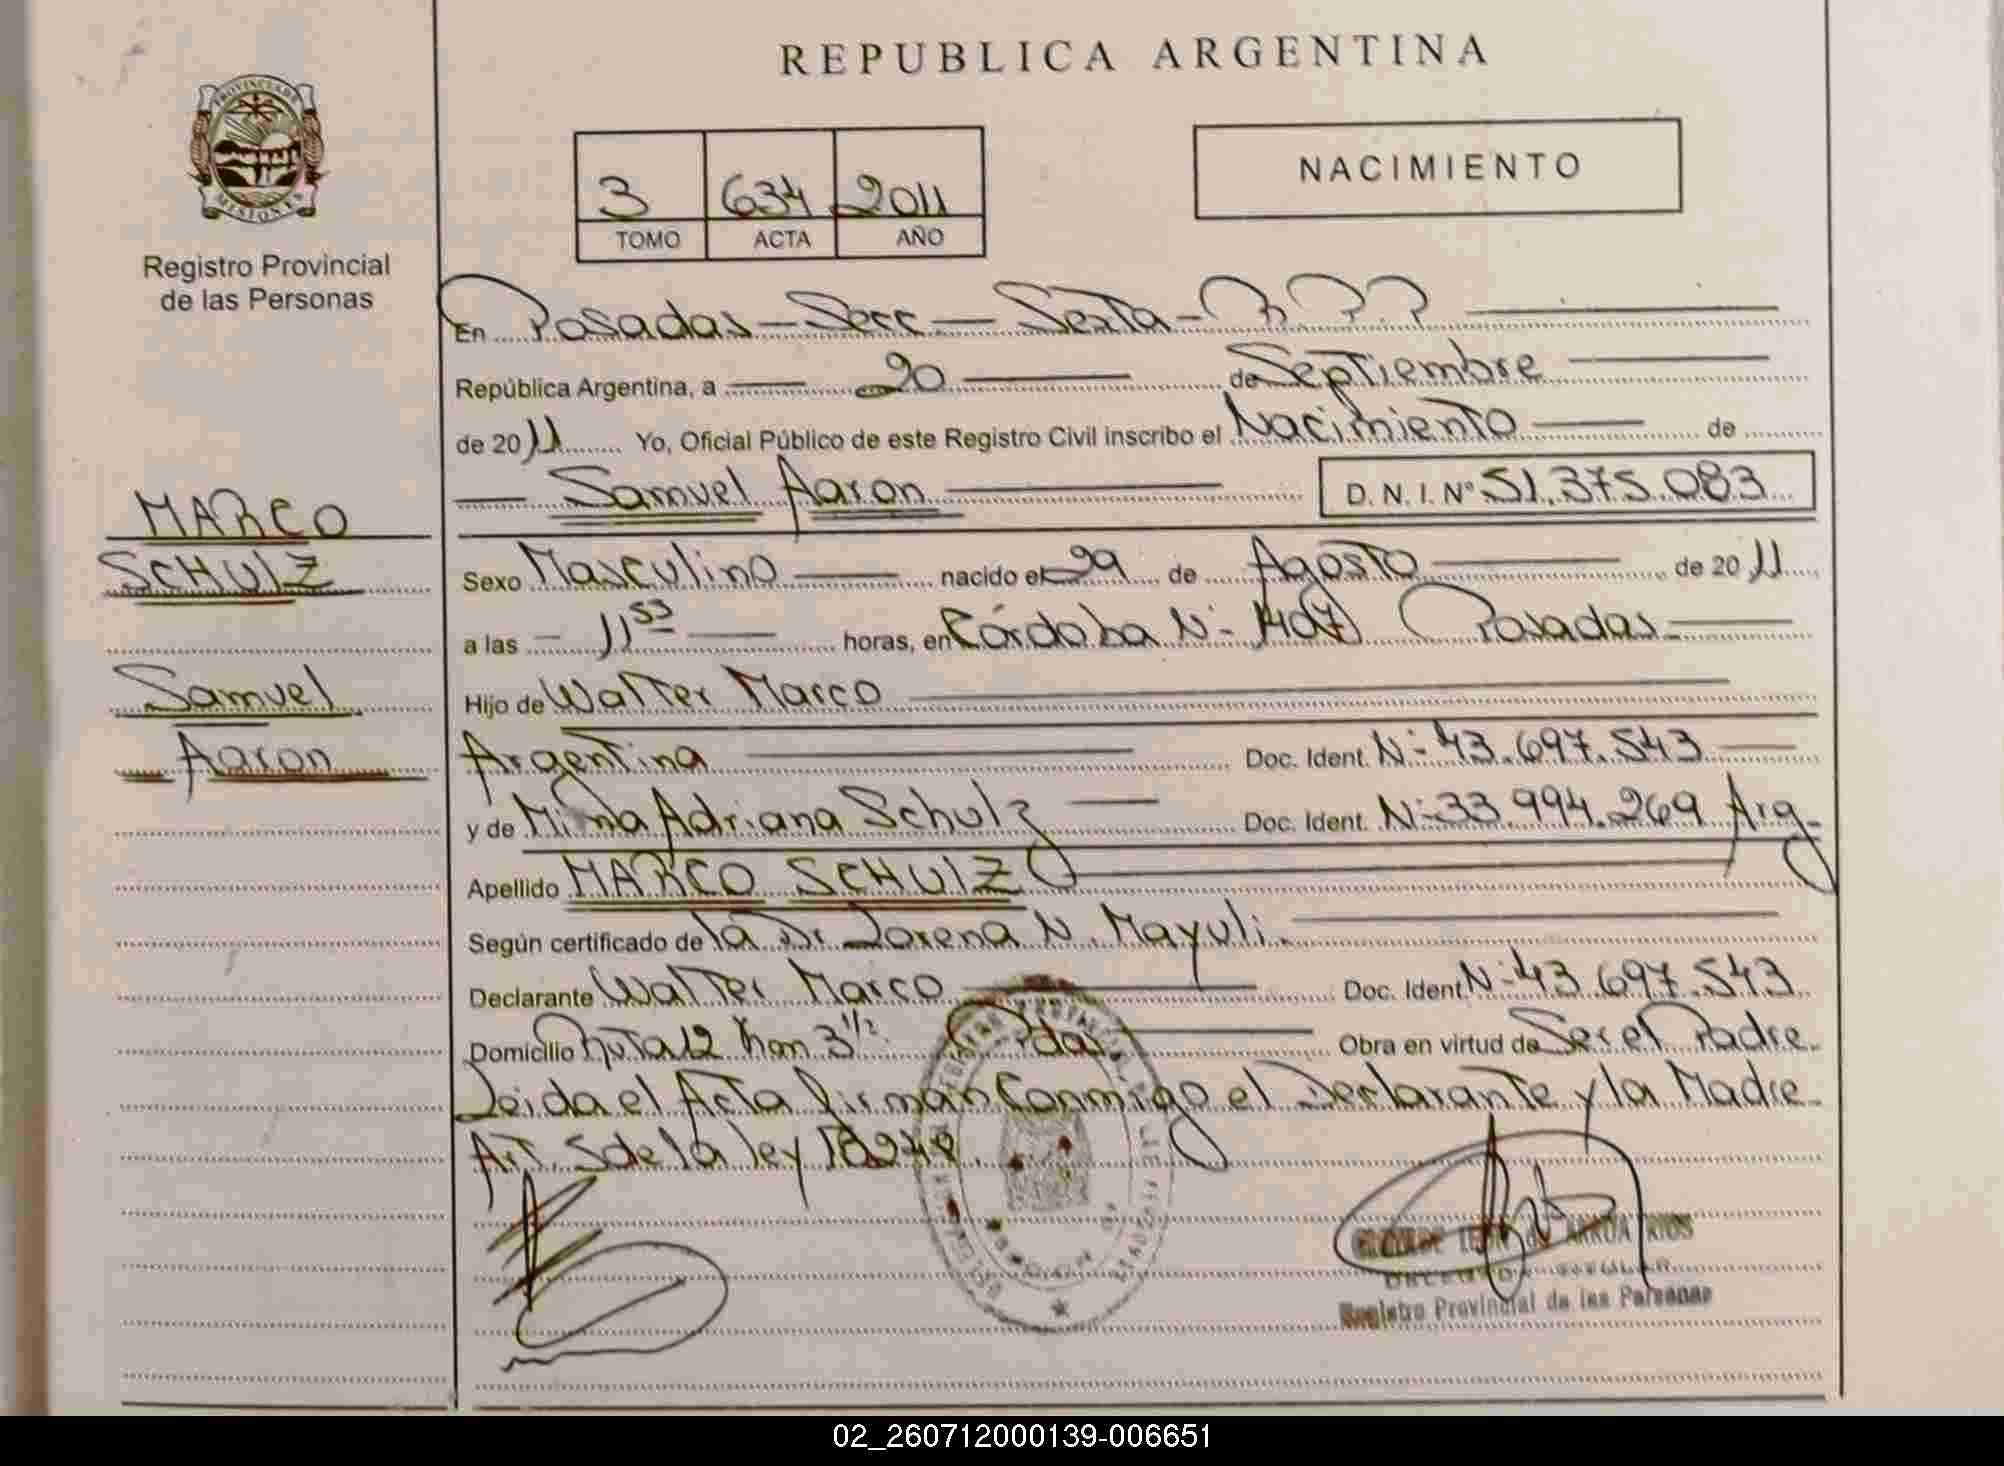 REPUBLICA ARGENTINA
PROVINCIA DE
MISIONES
Registro Provincial
de las Personas
3 634 2011
TOMO ACTA AÑO
NACIMIENTO
En Posadas - Secc - Sexta - R.P.P.
República Argentina, a 20 de Septiembre
de 2011 Yo, Oficial Público de este Registro Civil inscribo el Nacimiento de
Samuel Aaron D.N.I. Nº 51.375.083
MARCO
SCHULZ
Samuel
Aaron
Sexo Masculino nacido el 29 de Agosto de 2011
a las 11 53 horas, en Córdoba N- Posadas
Hijo de Walter Marco
Argentina Doc. Ident. N- 43.697.543
y de Mirna Adriana Schulz Doc. Ident. N- 33.994.269 Arg-
Apellido MARCO SCHULZ
Según certificado de la Dr Lorena N. Mayuli.
Declarante Walter Marco Doc. Ident N- 43.697.543
Domicilio Ruta 12 Km 3 1/2 Pdas. Obra en virtud de Ser el Padre.
Leida el Acta firman Conmigo el Declarante y la Madre.
Art. 5 de la ley 18248.
ARRUA RIOS
Registro Provincial de las Personas
02_260712000139-006651